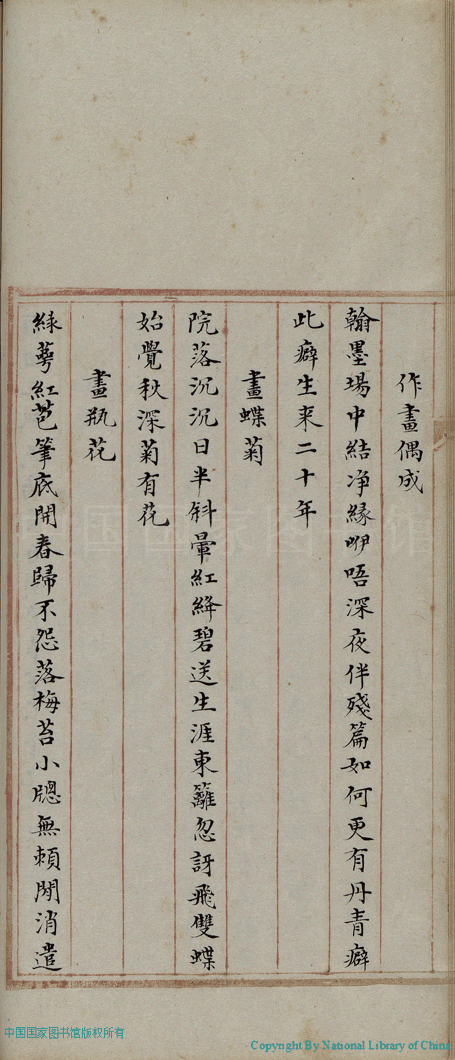 作畫偶成
翰墨場中結净緣咿唔深夜伴殘篇如何更有丹青癖
此癖生来二十年
畫蝶菊
院落沉沉日半斜暈紅絳碧送生涯東籬忽訝飛雙蝶
始覺秋深菊有花
畫瓶花
緑萼紅芭筆底開春歸不怨落梅苔小牕無賴閒消遣
中国国家图书馆版权所有
Copyright By National Library of China